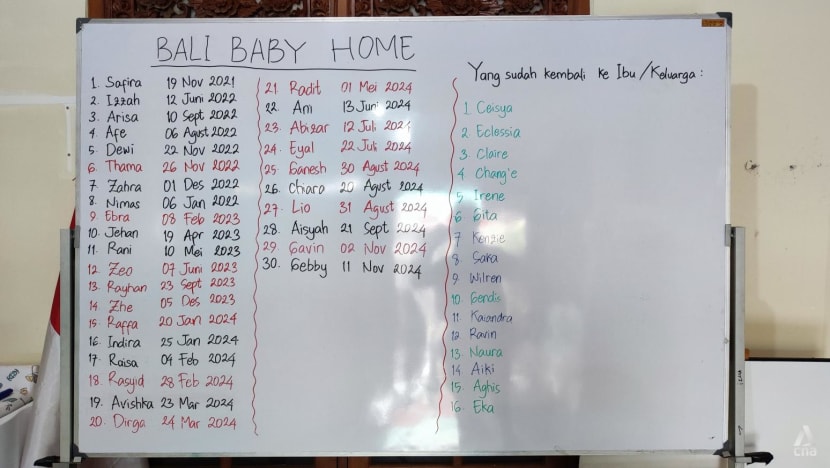 BALI BABY HOME
1. Safira 19 Nov 2021
2. Izzah 12 Juni 2022
3. Arisa 10 Sept 2022
4. Afe 06 Agust 2022
5. Dewi 22 Nov 2022
6. Thama 26 Nov 2022
7. Zahra 01 Des 2022
8. Nimas 06 Jan 2022
9. Ebra 08 Feb 2023
10. Jehan 19 Apr 2023
11. Rani 10 Mei 2023
12. Zeo 07 Juni 2023
13. Rayhan 23 Sept 2023
14. Zhe 05 Des 2023
15. Raffa 20 Jan 2024
16. Indira 25 Jan 2024
17. Raisa 04 Feb 2024
18. Rasyid 28 Feb 2024
19. Avishka 23 Mar 2024
20. Dirga 24 Mar 2024
21 Radit 01 Mei 2024
22. Am 13 Juni 2024
23. Abizar 12 Juli 2024
24. Eyal 22 Juli 2024
25 Ganesh 30 Agust 2024
26. Chiara 20 Agust 2024
27. Lio 31 Agust 2024
28. Aisyah 21 Sept 2024
29. Gavin 02 Nov 2024
30. Gebby 11 Nov 2024
Yang sudah kembali ke Ibu / Keluarga :
1 Ceisya
2 Eclessia
3 Claire
4 Chang'e
5 Irene
6 Gita
7 Kenzie
8. Saka
9 Wilren
10. Gendis
11 Kaiandra
12 Ravin
13. Naura
14 Aiki
15. Aghis
16. Eka
cna